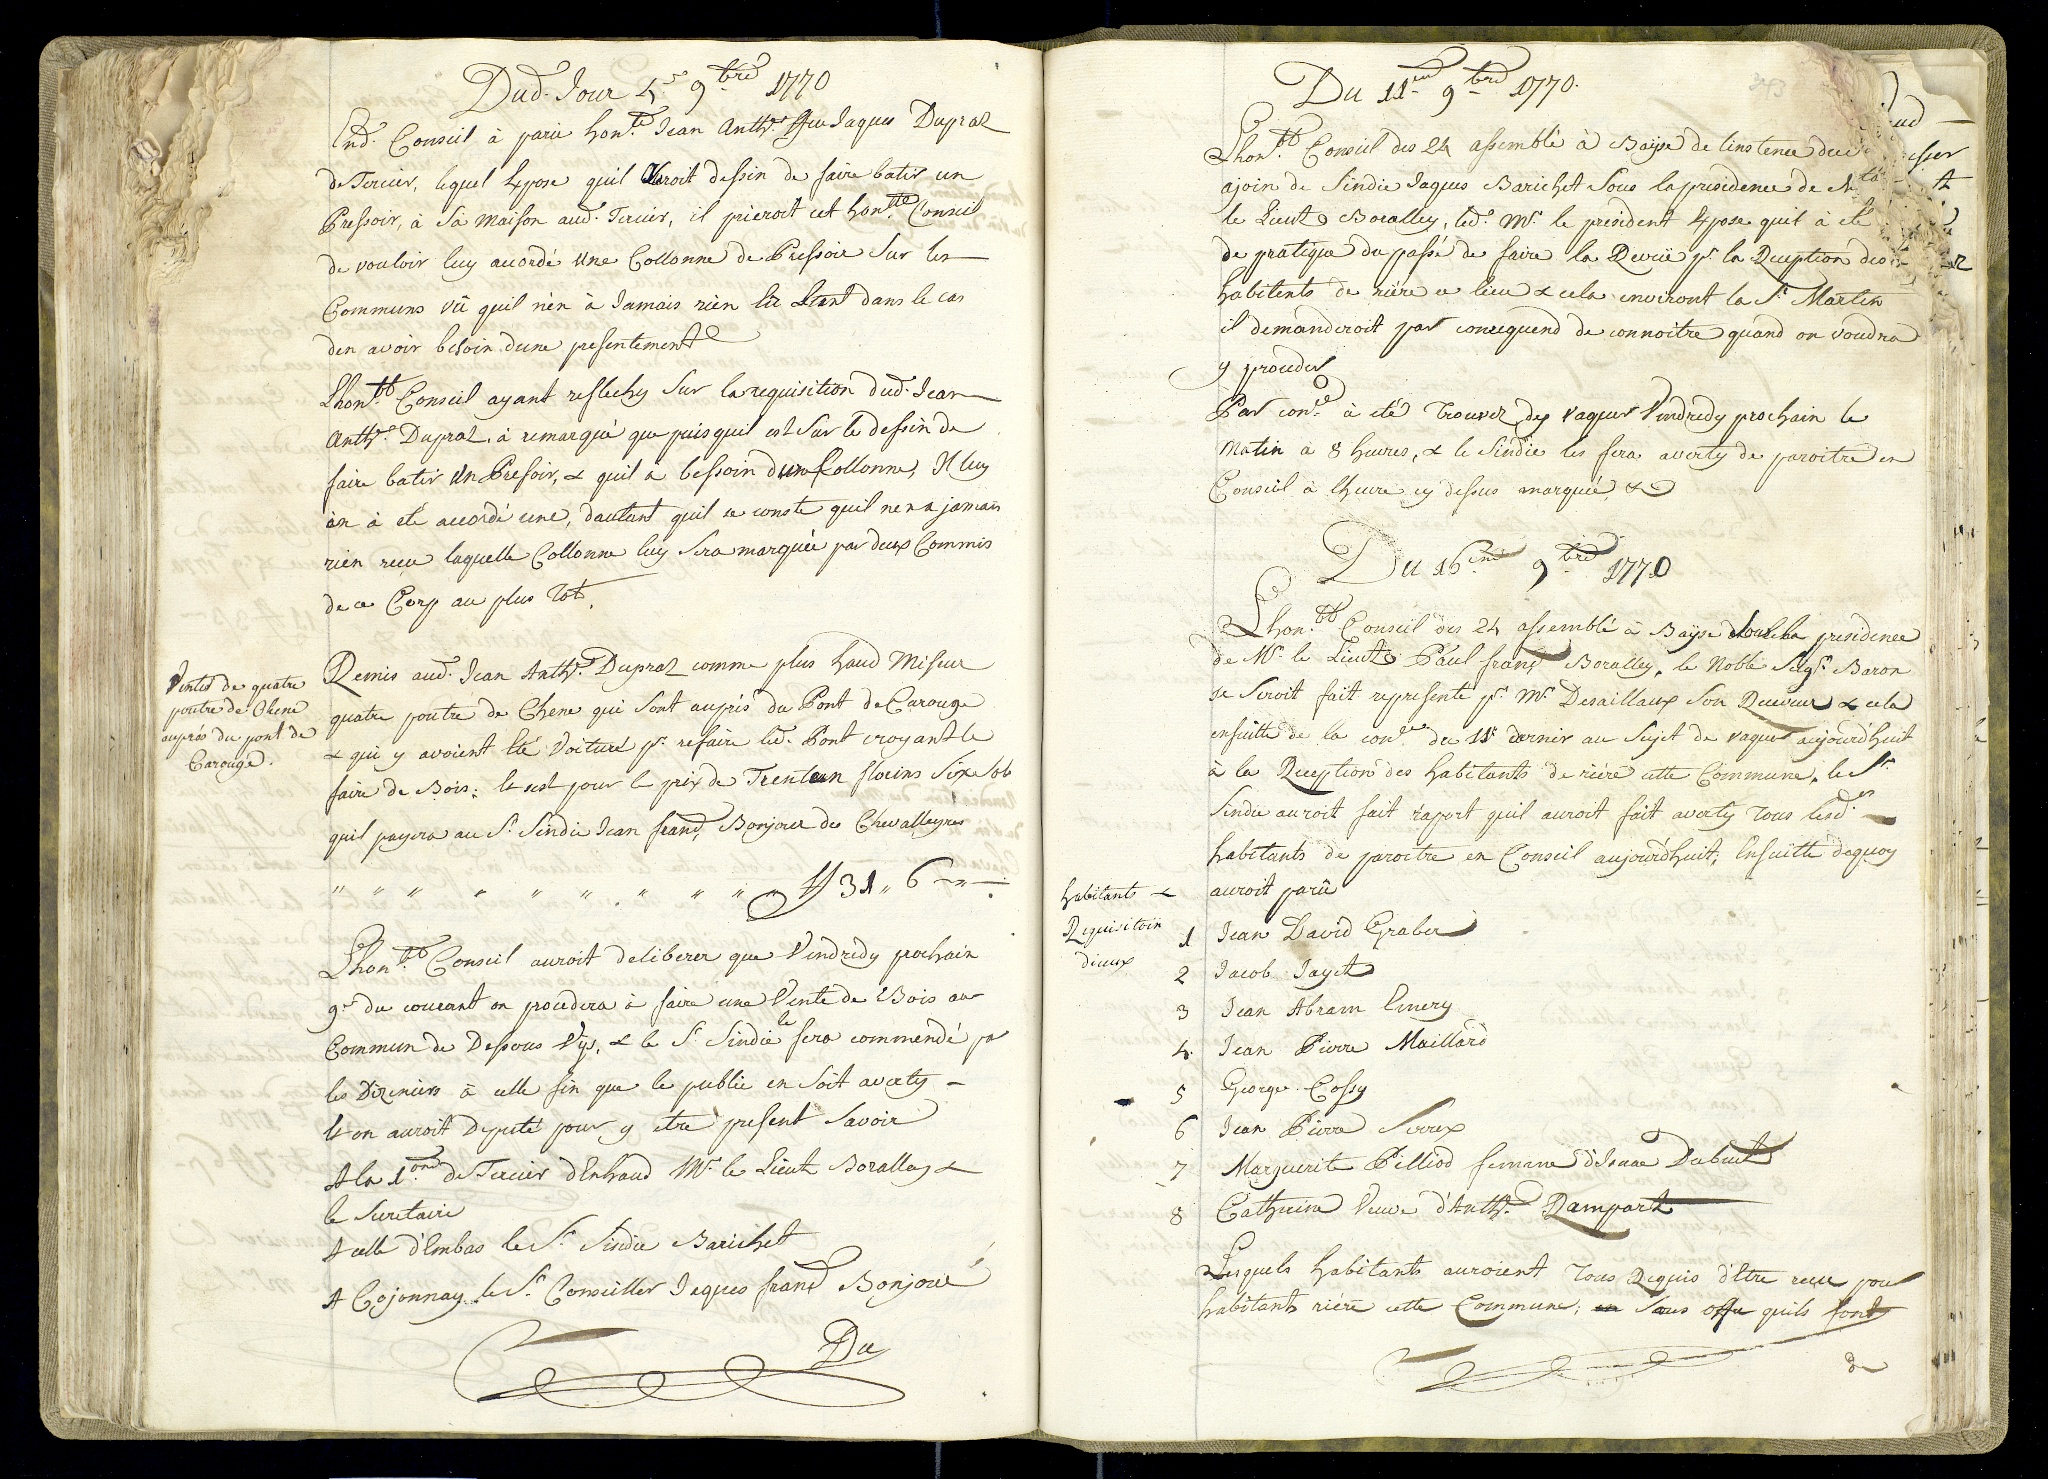 Dud. Jour 4.e 9.bre 1770
End. Conseil à parû hon.te Jean Anth.e ffeu Jaques Dupraz
de Tercier, lequel Expose quil auroit dessin de faire batir un
Pressoir, à Sa Maison aud. Tercier, il prieroit cet hon.ble Conseil
de vouloir luy accordé une Collonne de Pressoir Sur les
Communs vû quil n'en à Jamais rien Eu Etant dans le cas
den avoir besoin dune presentement
Lhon.ble Conseil ayant reflechy Sur la requisition dud. Jean
Anth.e Dupraz, à remarqué que puis quil est Sur le dessin de
faire batir un Presoir, & quil a bessoin d'une Collonne, Il luy
en à eté accordé une, dautant quil ce conste quil nen a jamais
rien receu laquelle Collonne luy Sera marquée par deux Commis
de ce Corp au plus tôt.
Vente de quatre
poutre de Chene
auprés du pont de
Carouge.
Remis aud. Jean Anth.e Dupraz comme plus haud Miseur
quatre poutre de Chene qui Sont auprés du Pont de Carouge
& qui y avoient Eté Voituré p.r refaire led. Pont croyant le
faire de Bois; Et cest pour le prix de Trenteun florins Six Sols
quil payera au S.r Sindic Jean franç. Bonjour des Chevalleyres
" " " " " " " " " " ff 31 „ 6 —„—.
Lhon.ble Conseil auroit deliberer que Vendredy prochain
9.e du courant on procedera à faire une Vente de Bois au
Commun de Dessous Vys, & le S.r Sindic le fera commendé par
les Dizeniers à celle fin que le public en Soit averty —
Et on auroit Deputé pour y etre present Savoir
A la 1.ere de Tercier d'Enhaud M.r le Lieut. Boralley &
le Secretaire
A celle d'Embas le S.r Sindic Barichet
A Cojonnay le S.r Conseiller Jaques franç. Bonjour
Du
Du 11.eme 9.bre 1770.
343
Lhon.ble Conseil des 24 assemblé à Bayse de linstence du
ajoin de Sindic Jaques Barichet Sous la presidence de
le Lieut. Boralley, led. M.r le president Expose quil à eté
de pratique du passé de faire la Revüe p.r la Reception des
habitents de riére ce lieu & cela environt la S.t Martin
il demanderoit par consequend de connoitre quand on voudra
y proceder
Par con.ce à eté trouver dy vaquer Vendredy prochain le
matin à 8 heures, & le Sindic les fera averty de paroitre en
Conseil à lheure cy dessus marquée, &
Du 16.eme 9.bre 1770
Lhon.ble Conseil des 24 assemblé à Bayse sous la presidence
de M.r le Lieut. Paul franç. Boralley, le Noble Seig.r Baron
se Seroit fait representé p.r M.r Desaillaux Son Receveur & cela
ensuitte de la con.ce du 11.e dernir au Sujet de vaquer aujourdhuit
à la Reception des habitants de riére cette Commune, le S.r
Sindic auroit fait raport quil auroit fait averty tous lesd.s
habitants de paroitre en Conseil aujourdhuit, Ensuitte dequoy
auroit parû
habitants &
Requisitoin
diceux
1 Jean David Graber
2 Jacob Jayet
3 Jean Abram Emery
4. Jean Pierre Maillard
5 George Cossy
6 Jean Pierre Serex
7 Marguerite Pilliod femme d'Isaac Dubuit
8 Catherine Veuve d'Anth.e Rampart
Lesquels habitants auroient tous Requis d'Etre receu pour
habitants riére cette Commune, Sous offre quils font
de